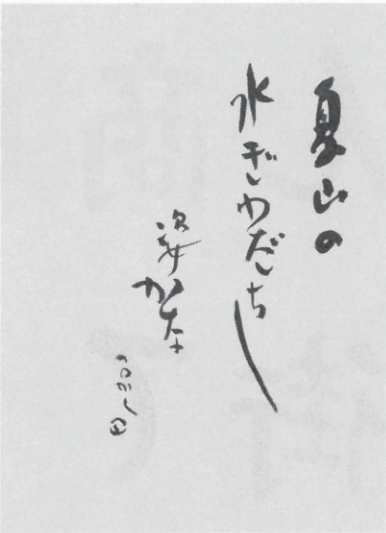 夏山の
水ぎわだちし
姿かな